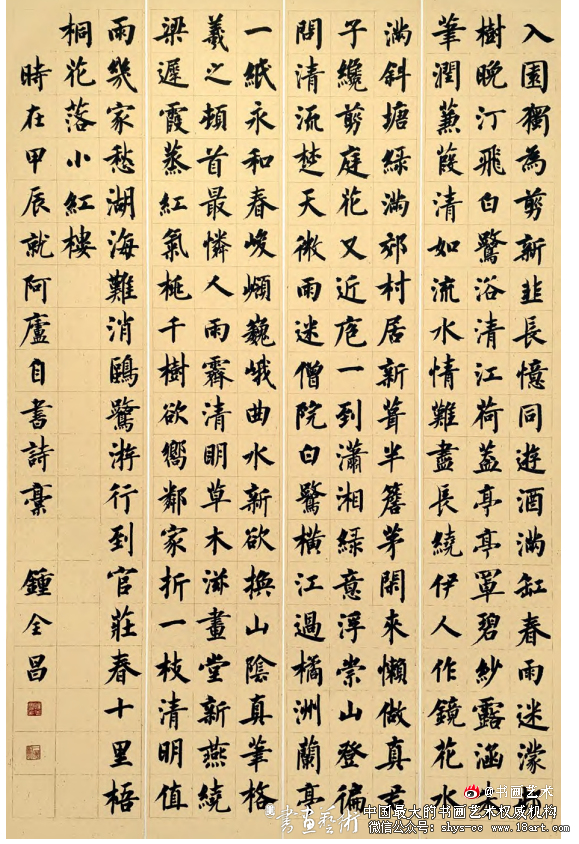 入園獨為剪新韭長憶同遊酒滿缸春雨迷濛
樹晚汀飛白鷺浴清江荷蓋亭亭罩碧紗露涵
筆潤蒹葭清如流水情難盡長繞伊人作鏡花水
滿斜塘綠滿郊村居新葺半簷茅閑來懶做真君
子纔剪庭花又近庖一到瀟湘綠意浮崇山登徧
問清流楚天微雨迷僧院白鷺橫江過橘洲蘭亭
一紙永和春峻嶺巍峨曲水新欲換山陰真筆格
羲之頓首最憐人雨霽清明草木滋畫堂新燕繞
梁遲霞蒸紅氣桃千樹欲嚮鄰家折一枝清明值
雨幾家愁湖海難消鷗鷺游行到官莊春十里梧
桐花落小紅樓
時在甲辰就阿廬自書詩稾 鍾全昌
@书画艺术
書畫藝術
中国最大的书画艺术权威机构
微信公众号: shys-cc www.18art.com